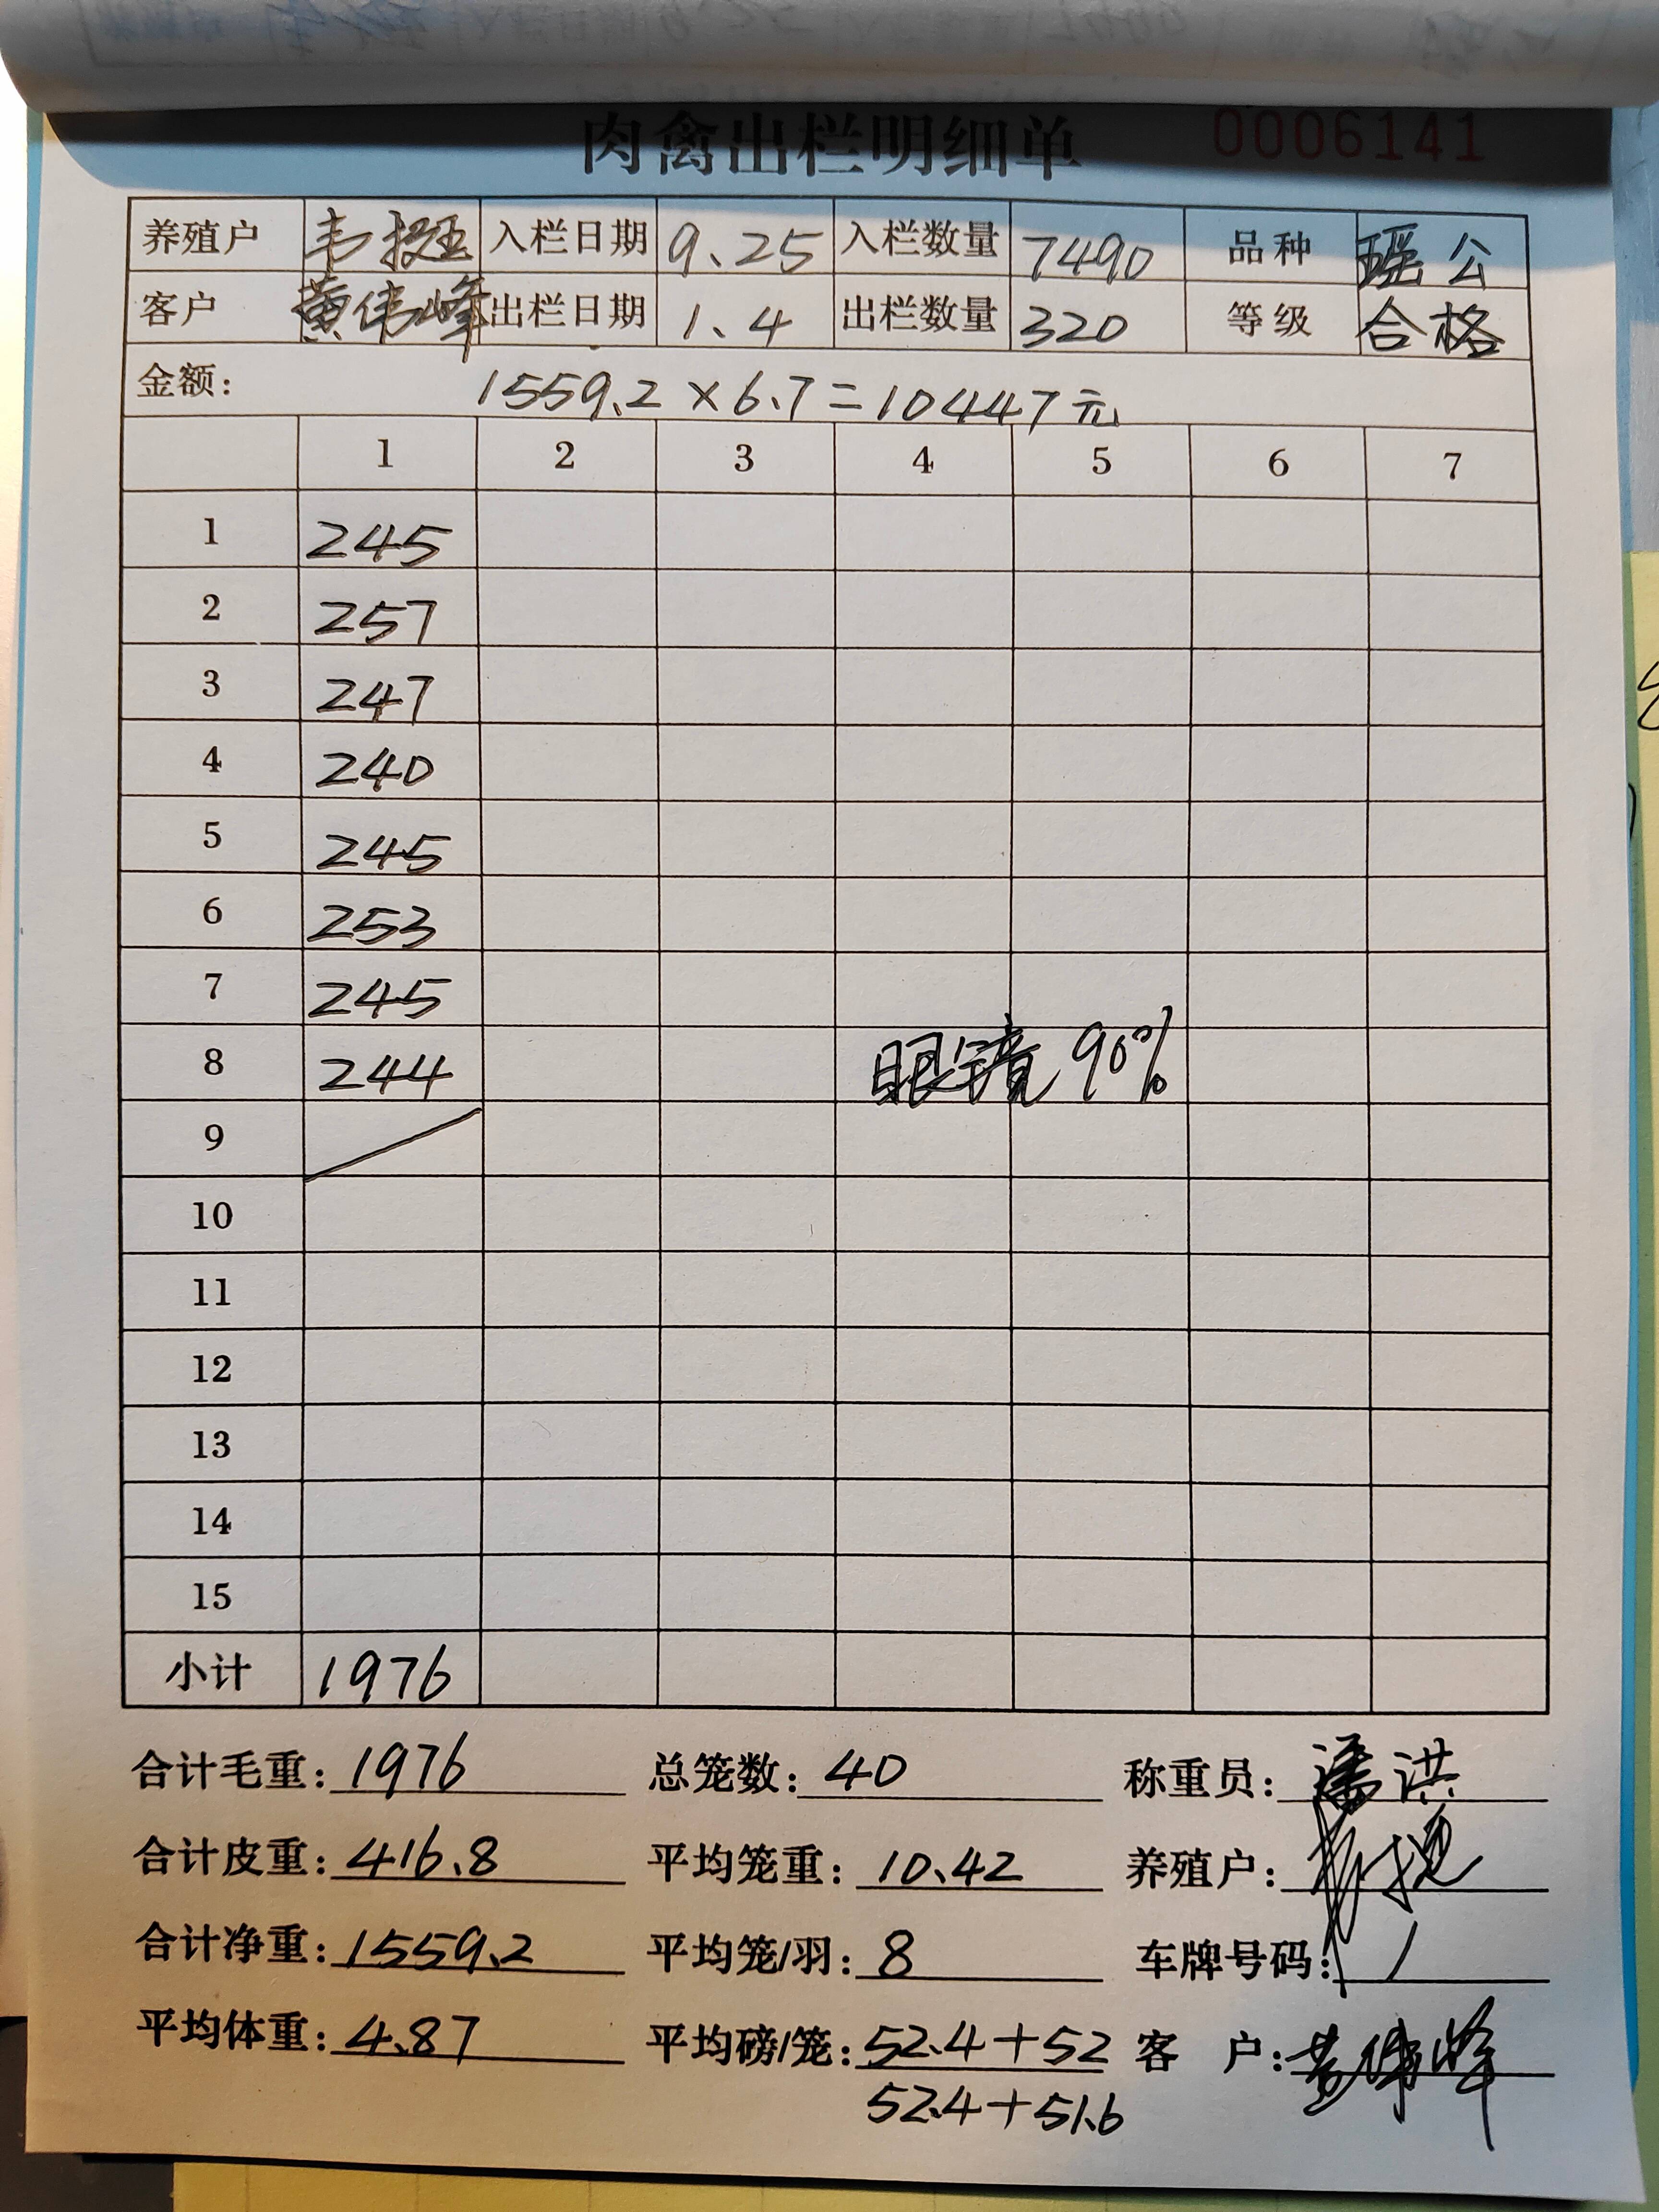 肉禽出栏明细单 0006141
养殖户 韦 入栏日期 9.25 入栏数量 7490 品种 瑶公
客户 黄伟峰 出栏日期 1.4 出栏数量 320 等级 合格
金额: 1559.2×6.7=10447元
1 2 3 4 5 6 7
1 245
2 257
3 247
4 240
5 245
6 253
7 245
8 244 眼镜90%
9
10
11
12
13
14
15
小计 1976
合计毛重: 1976 总笼数: 40 称重员: 潘洪
合计皮重: 416.8 平均笼重: 10.42 养殖户:
合计净重: 1559.2 平均笼/羽: 8 车牌号码: /
平均体重: 4.87 平均磅/笼: 52.4+52 客 户: 黄伟峰
52.4+51.6